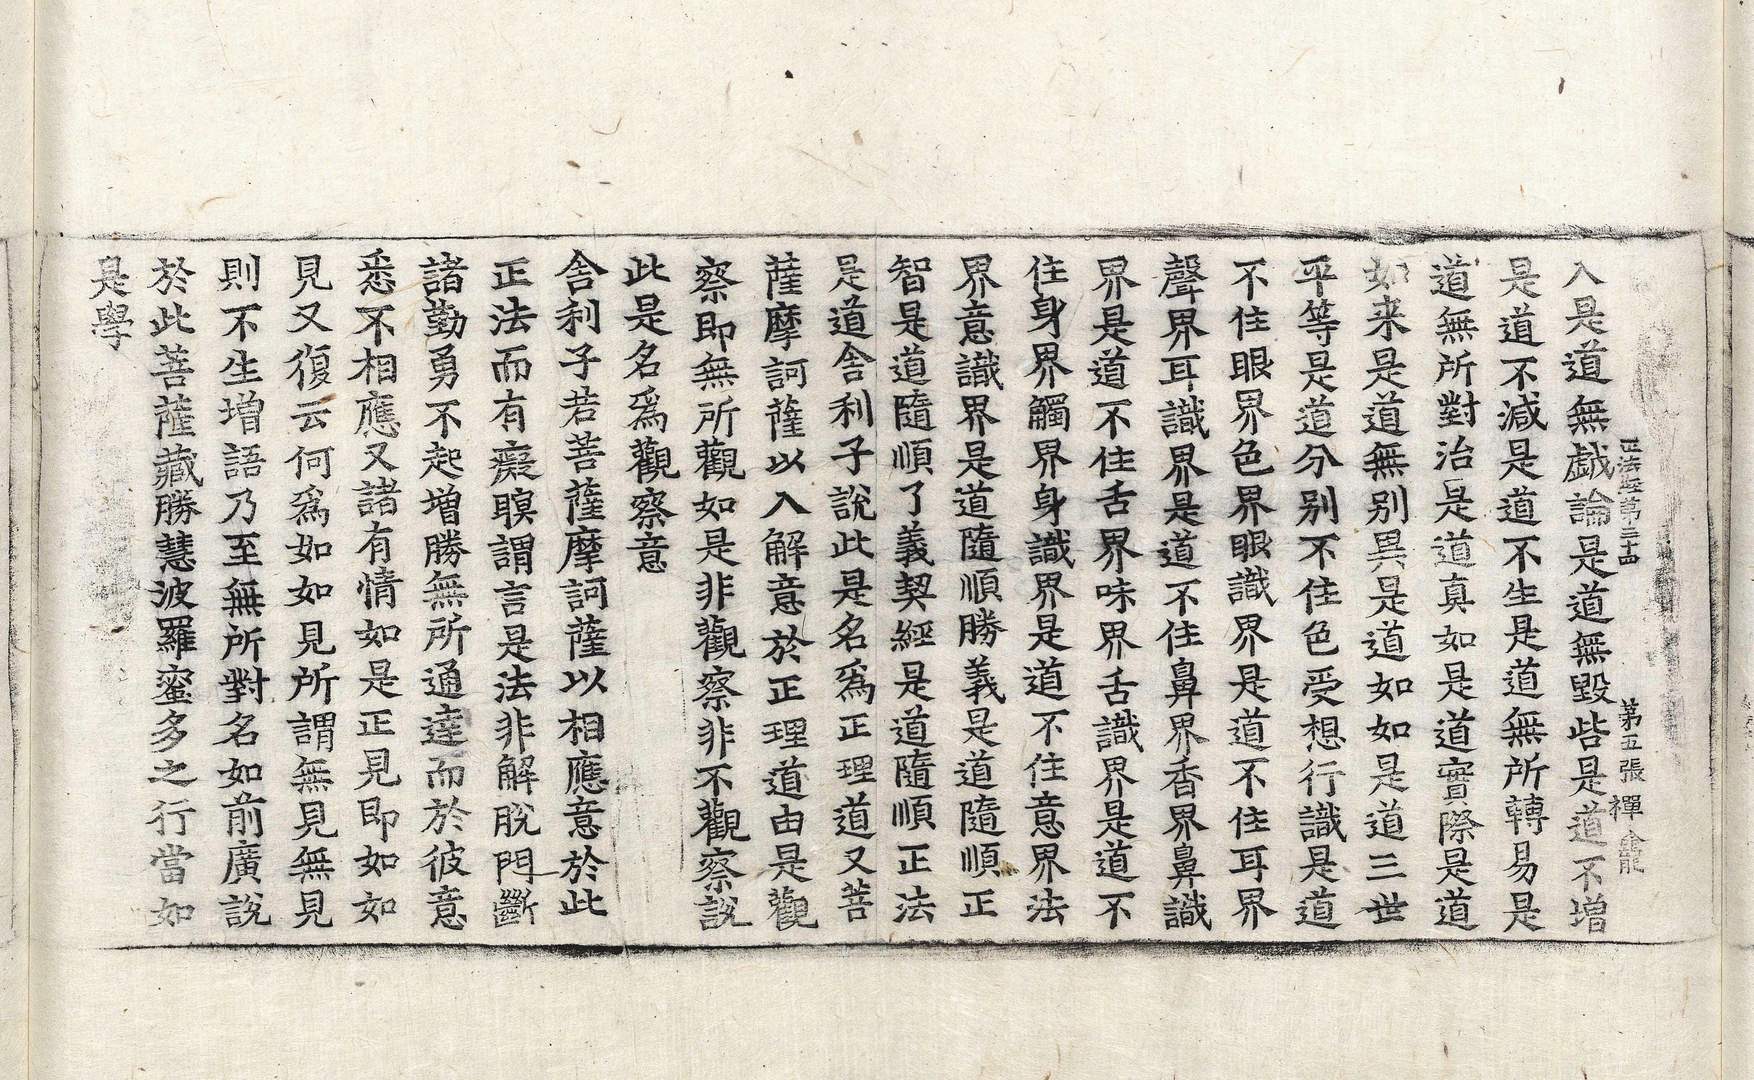 正法藏第三十四　第五張　禪　龕
入是道無戱論是道無毀呰是道不增
是道不減是道不生是道無所轉易是
道無所對治是道真如是道實際是道
如来是道無别異是道如如是道三世
平等是道分别不住色受想行識是道
不住眼界色界眼識界是道不住耳界
聲界耳識界是道不住鼻界香界鼻識
界是道不住舌界味界舌識界是道不
住身界觸界身識界是道不住意界法
界意識界是道隨順勝義是道隨順正
智是道隨順了義契經是道隨順正法
是道舍利子說此是名爲正理道又菩
薩摩訶薩以入解意於正理道由是觀
察即無所觀如是非觀察非不觀察說
此是名爲觀察意
舍利子若菩薩摩訶薩以相應意於此
正法而有癡瞑謂言是法非解脫門斷
諸勤勇不起增勝無所通達而於彼意
悉不相應又諸有情如是正見即如如
見又復云何爲如如見所謂無見無見
則不生增語乃至無所對名如前廣說
於此菩薩藏勝慧波羅蜜多之行當如
是學